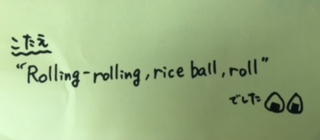 こたえ
"Rolling-rolling, rice ball, roll"
でした🍙🍙